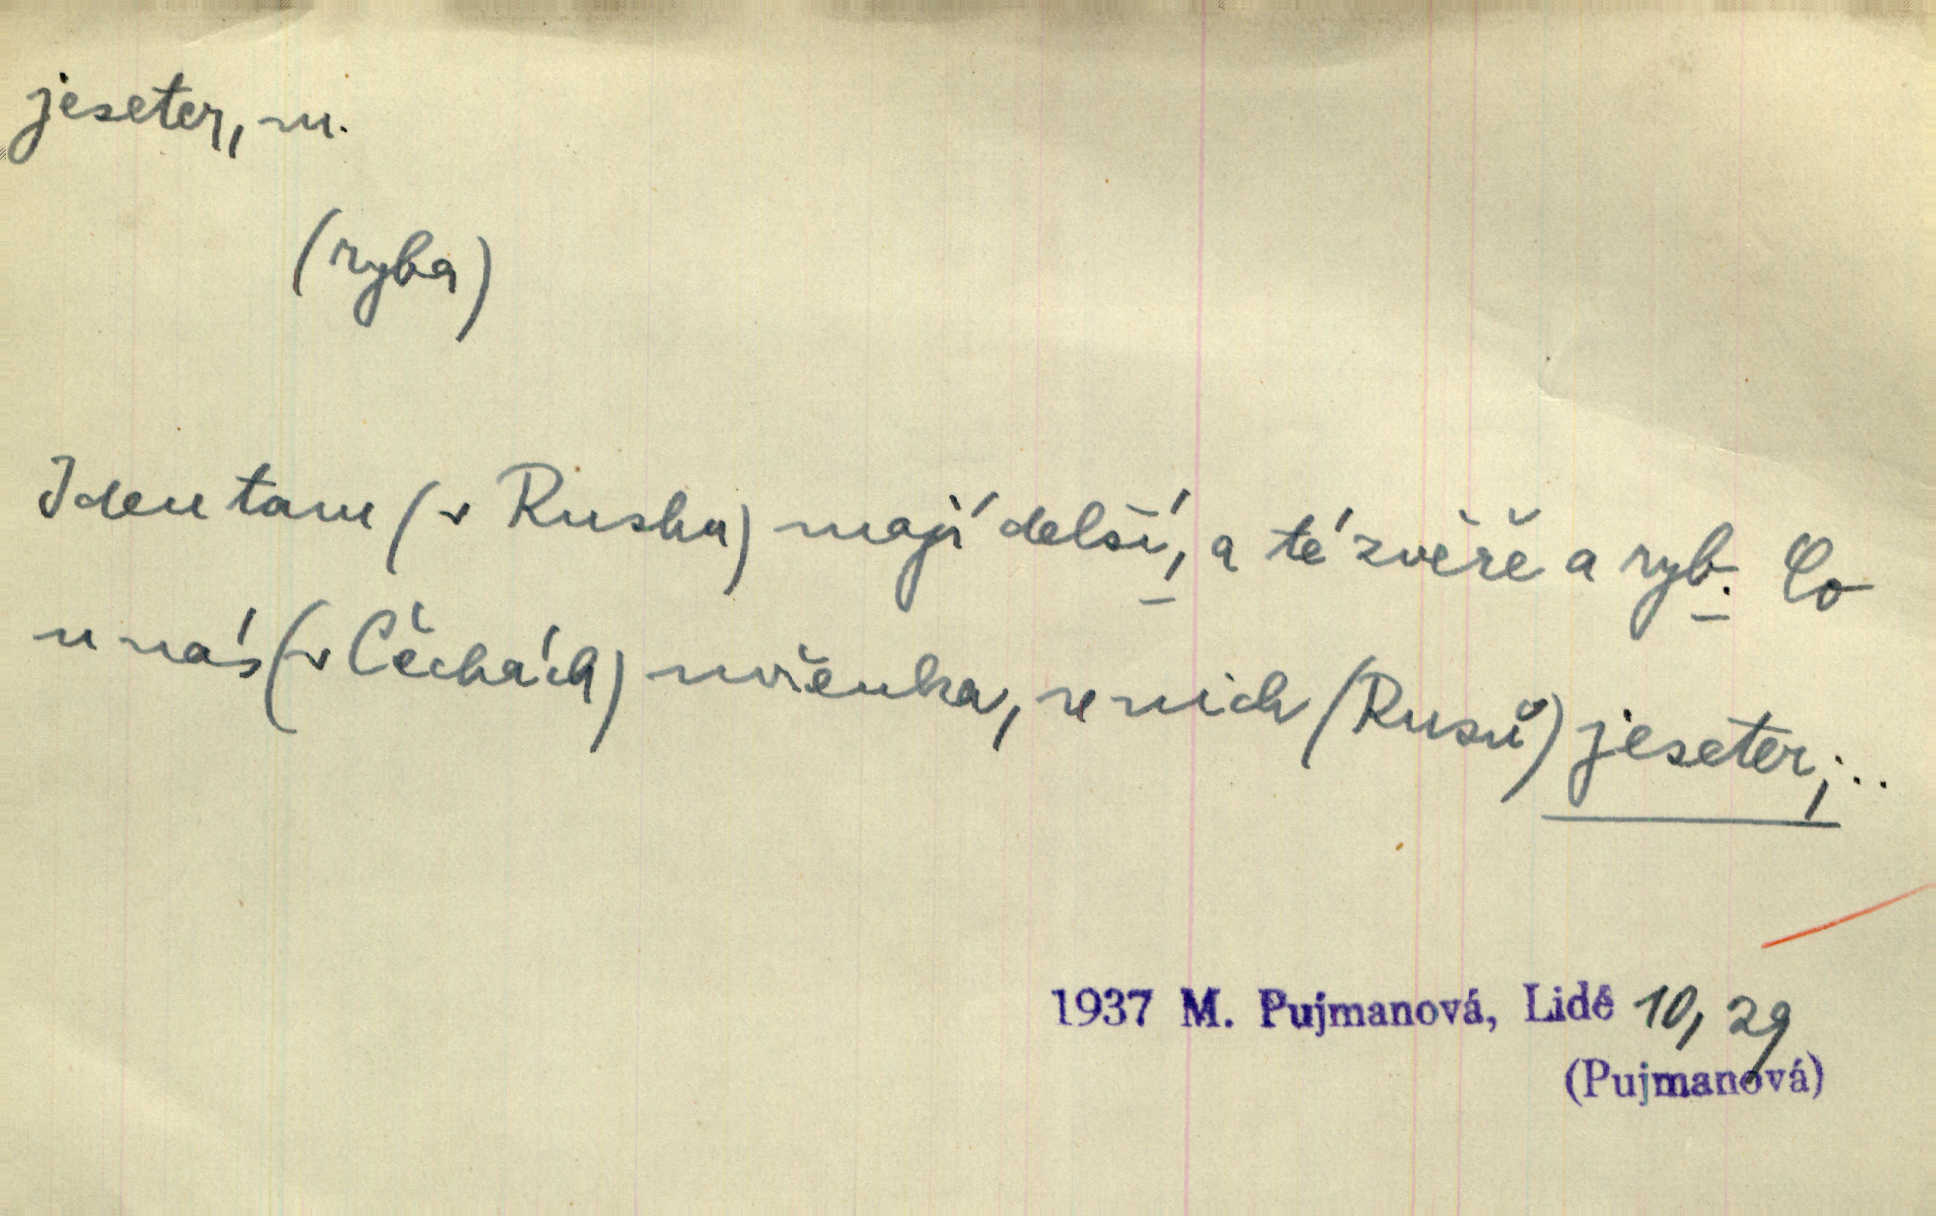 jeseter, m.
(ryba)
I den tam (v Rusku) mají delší, a té zvěře a ryb. Co
u nás (v Čechách) mřenka, u nich (Rusů) jeseter;..
1937 M. Pujmanová, Lidé 10, 29
(Pujmanová)